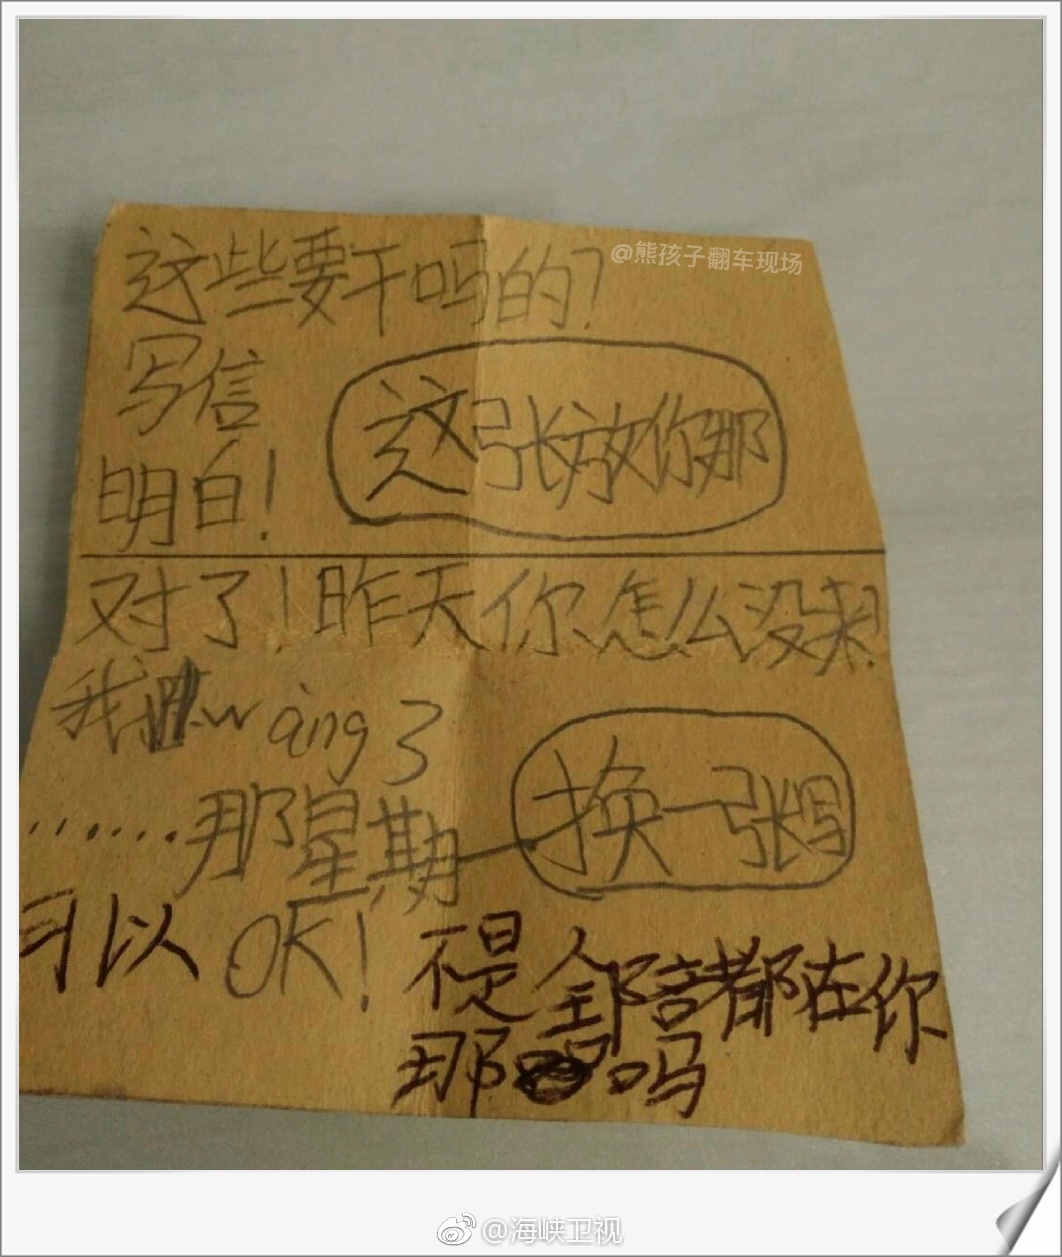 @熊孩子翻车现场
这些要干吗的?
写信
这张放你那
明白!
对了!昨天你怎么没来?
我 wàng了
......那星期一
换一张写
可以 OK! 不是全部 都在你
那 吗
@海峡卫视